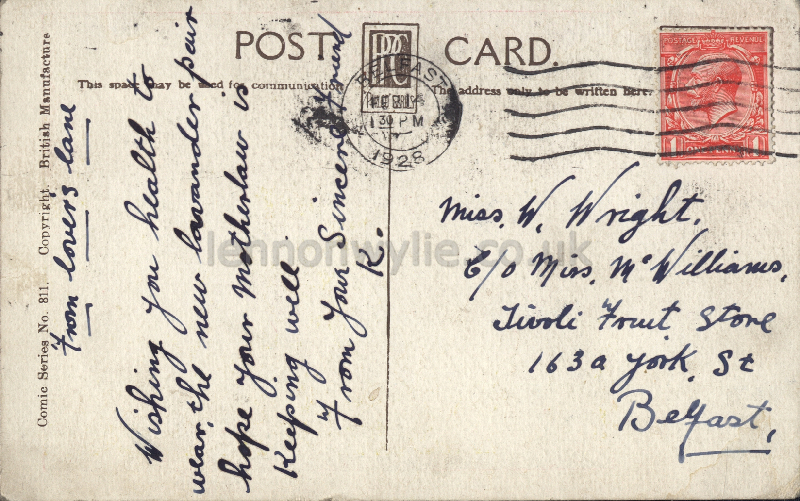 POST CARD.
This space may be used for communication
The address only to be written here.
BELFAST
1 30 PM
1928
POSTAGE REVENUE
Miss. W. Wright.
C/o Miss. McWilliams,
Tivoli Fruit Store
163a York. St
Belfast,
From lovers lane
Wishing you health to
wear the new lavander pair
hope your Motherlaw is
Keeping well
From your Sincere Friend
K.
Comic Series No. 811. Copyright. British Manufacture
lennonwylie.co.uk